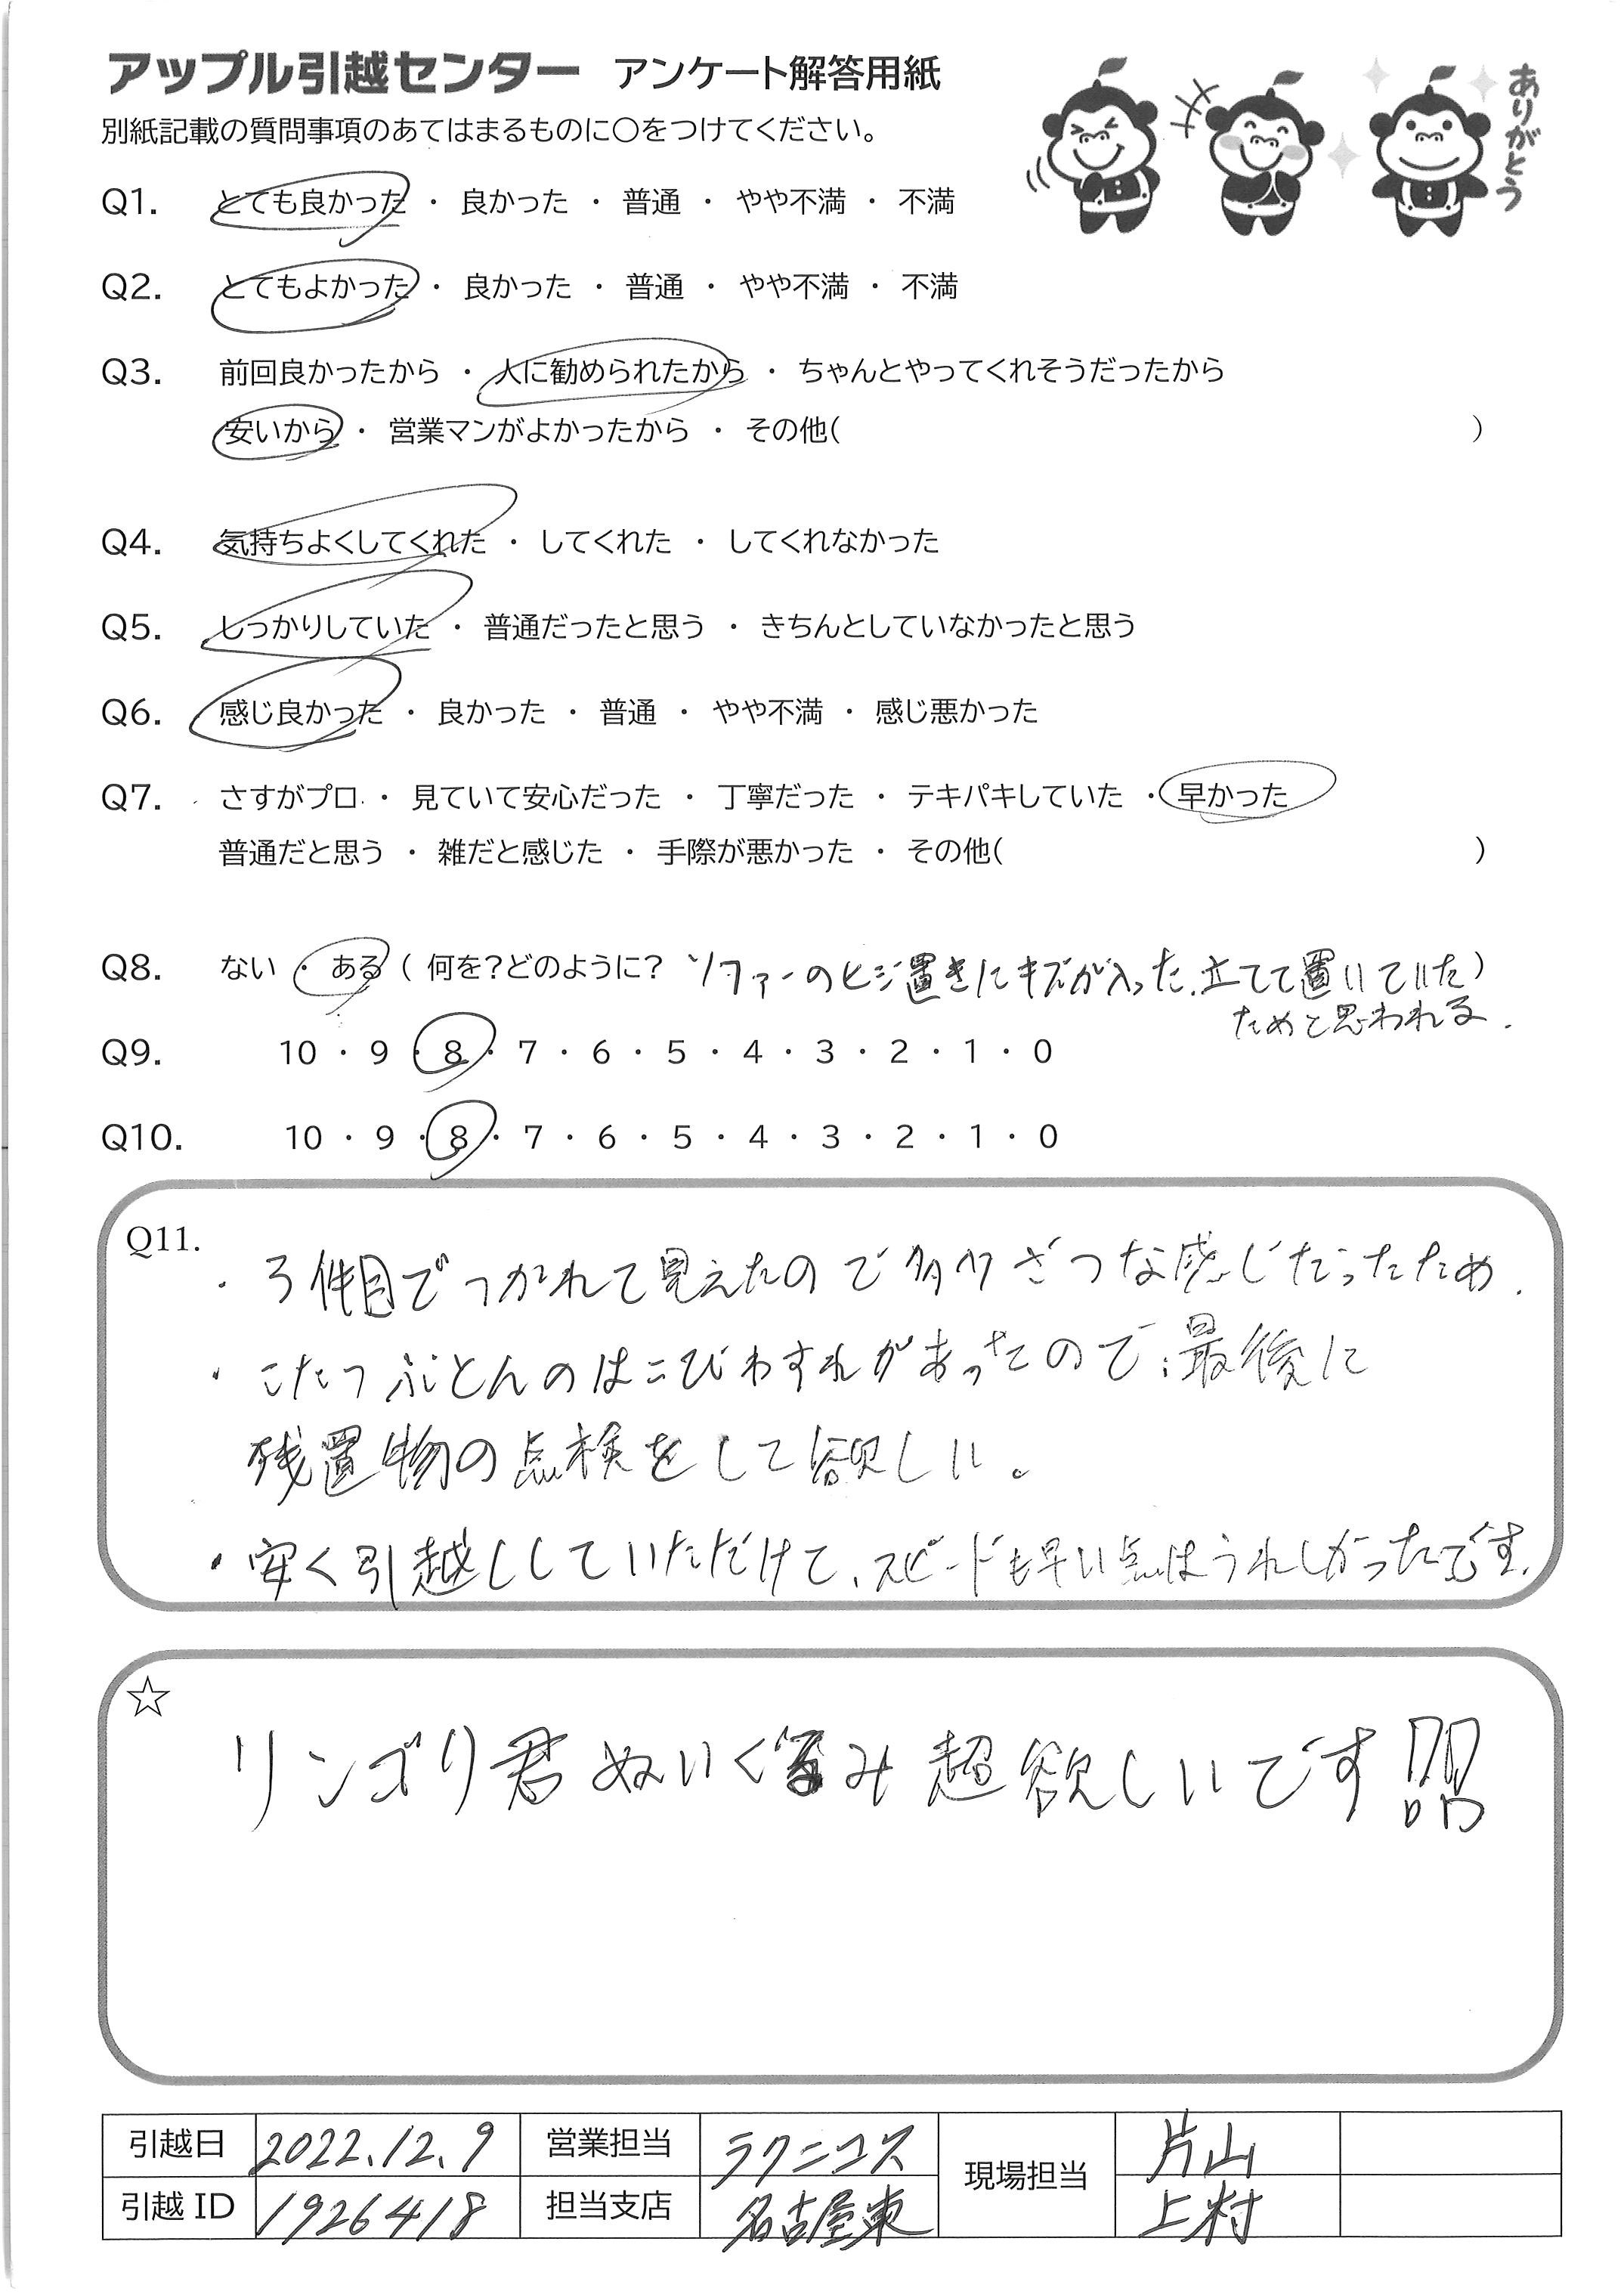 アップル引越センター アンケート解答用紙
ありがとう
別紙記載の質問事項のあてはまるものに〇をつけてください。
Q1. とても良かった ・ 良かった ・ 普通 ・ やや不満 ・ 不満
Q2. とてもよかった ・ 良かった ・ 普通 ・ やや不満 ・ 不満
Q3. 前回良かったから ・ 人に勧められたから ・ ちゃんとやってくれそうだったから
安いから ・ 営業マンがよかったから ・ その他( )
Q4. 気持ちよくしてくれた ・ してくれた ・ してくれなかった
Q5. しっかりしていた ・ 普通だったと思う ・ きちんとしていなかったと思う
Q6. 感じ良かった ・ 良かった ・ 普通 ・ やや不満 ・ 感じ悪かった
Q7. さすがプロ ・ 見ていて安心だった ・ 丁寧だった ・ テキパキしていた ・ 早かった
普通だと思う ・ 雑だと感じた ・ 手際が悪かった ・ その他( )
Q8. ない ・ ある ( 何を?どのように? ソファーのヒジ置きにキズが入った、立てて置いていた)
ためと思われる.
Q9. 10 ・ 9 ・ 8 ・ 7 ・ 6 ・ 5 ・ 4 ・ 3 ・ 2 ・ 1 ・ 0
Q10. 10 ・ 9 ・ 8 ・ 7 ・ 6 ・ 5 ・ 4 ・ 3 ・ 2 ・ 1 ・ 0
Q11.
・3件目でつかれて見えたので多少ざつな感じだったため.
・こたつぶとんのはこびわすれがあったので、最後に
残置物の点検をして欲しい。
・安く引越ししていただけて、スピードも早い点はうれしかったです.
☆
リンゴリ君ぬいぐるみ超欲しいです!!
引越日 2022.12.9 営業担当 ラクニコス 現場担当 片山
引越ID 1926418 担当支店 名古屋東 上村